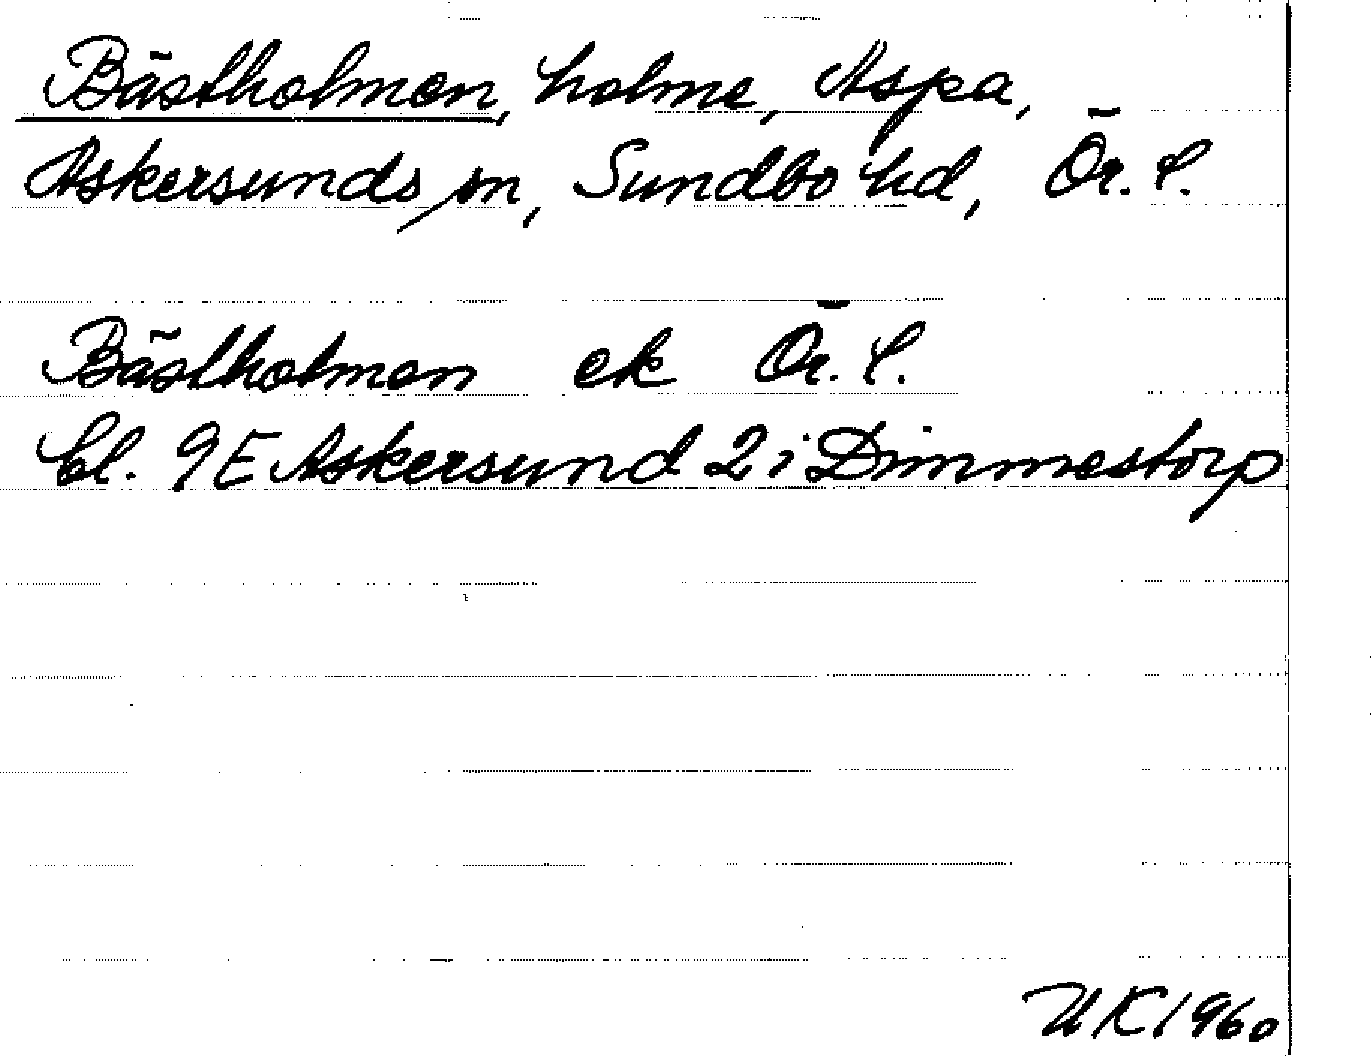 Bästholmen, holme, Aspa,
Askersunds sn, Sundbo hd, Ör. l.
Bästholmen ek Ör. l.
bl. 9E Askersund 2 i Dimmestorp
UK 1960